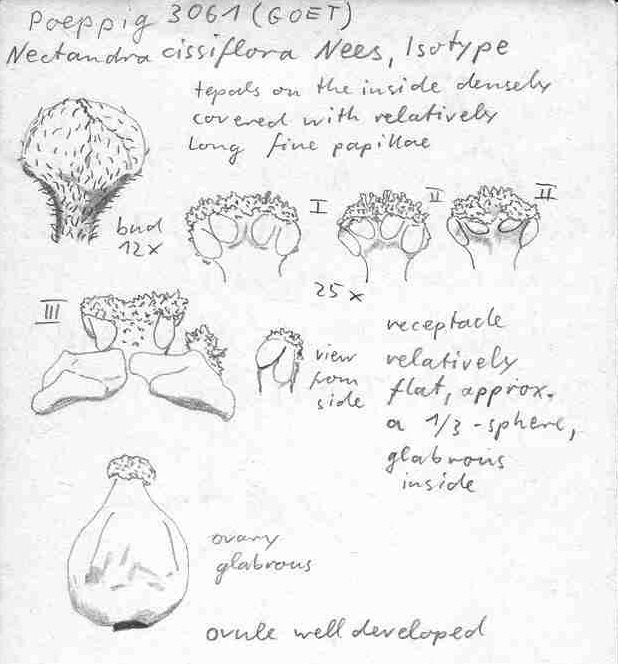 Poeppig 3061 (GOET)
Nectandra cissiflora Nees, Isotype
tepals on the inside densely
covered with relatively
long fine papillae
bud
12x
I
II
II
25x
III
view
from
side
receptacle
relatively
flat, approx.
a 1/3-sphere,
glabrous
inside
ovary
glabrous
ovule well developed